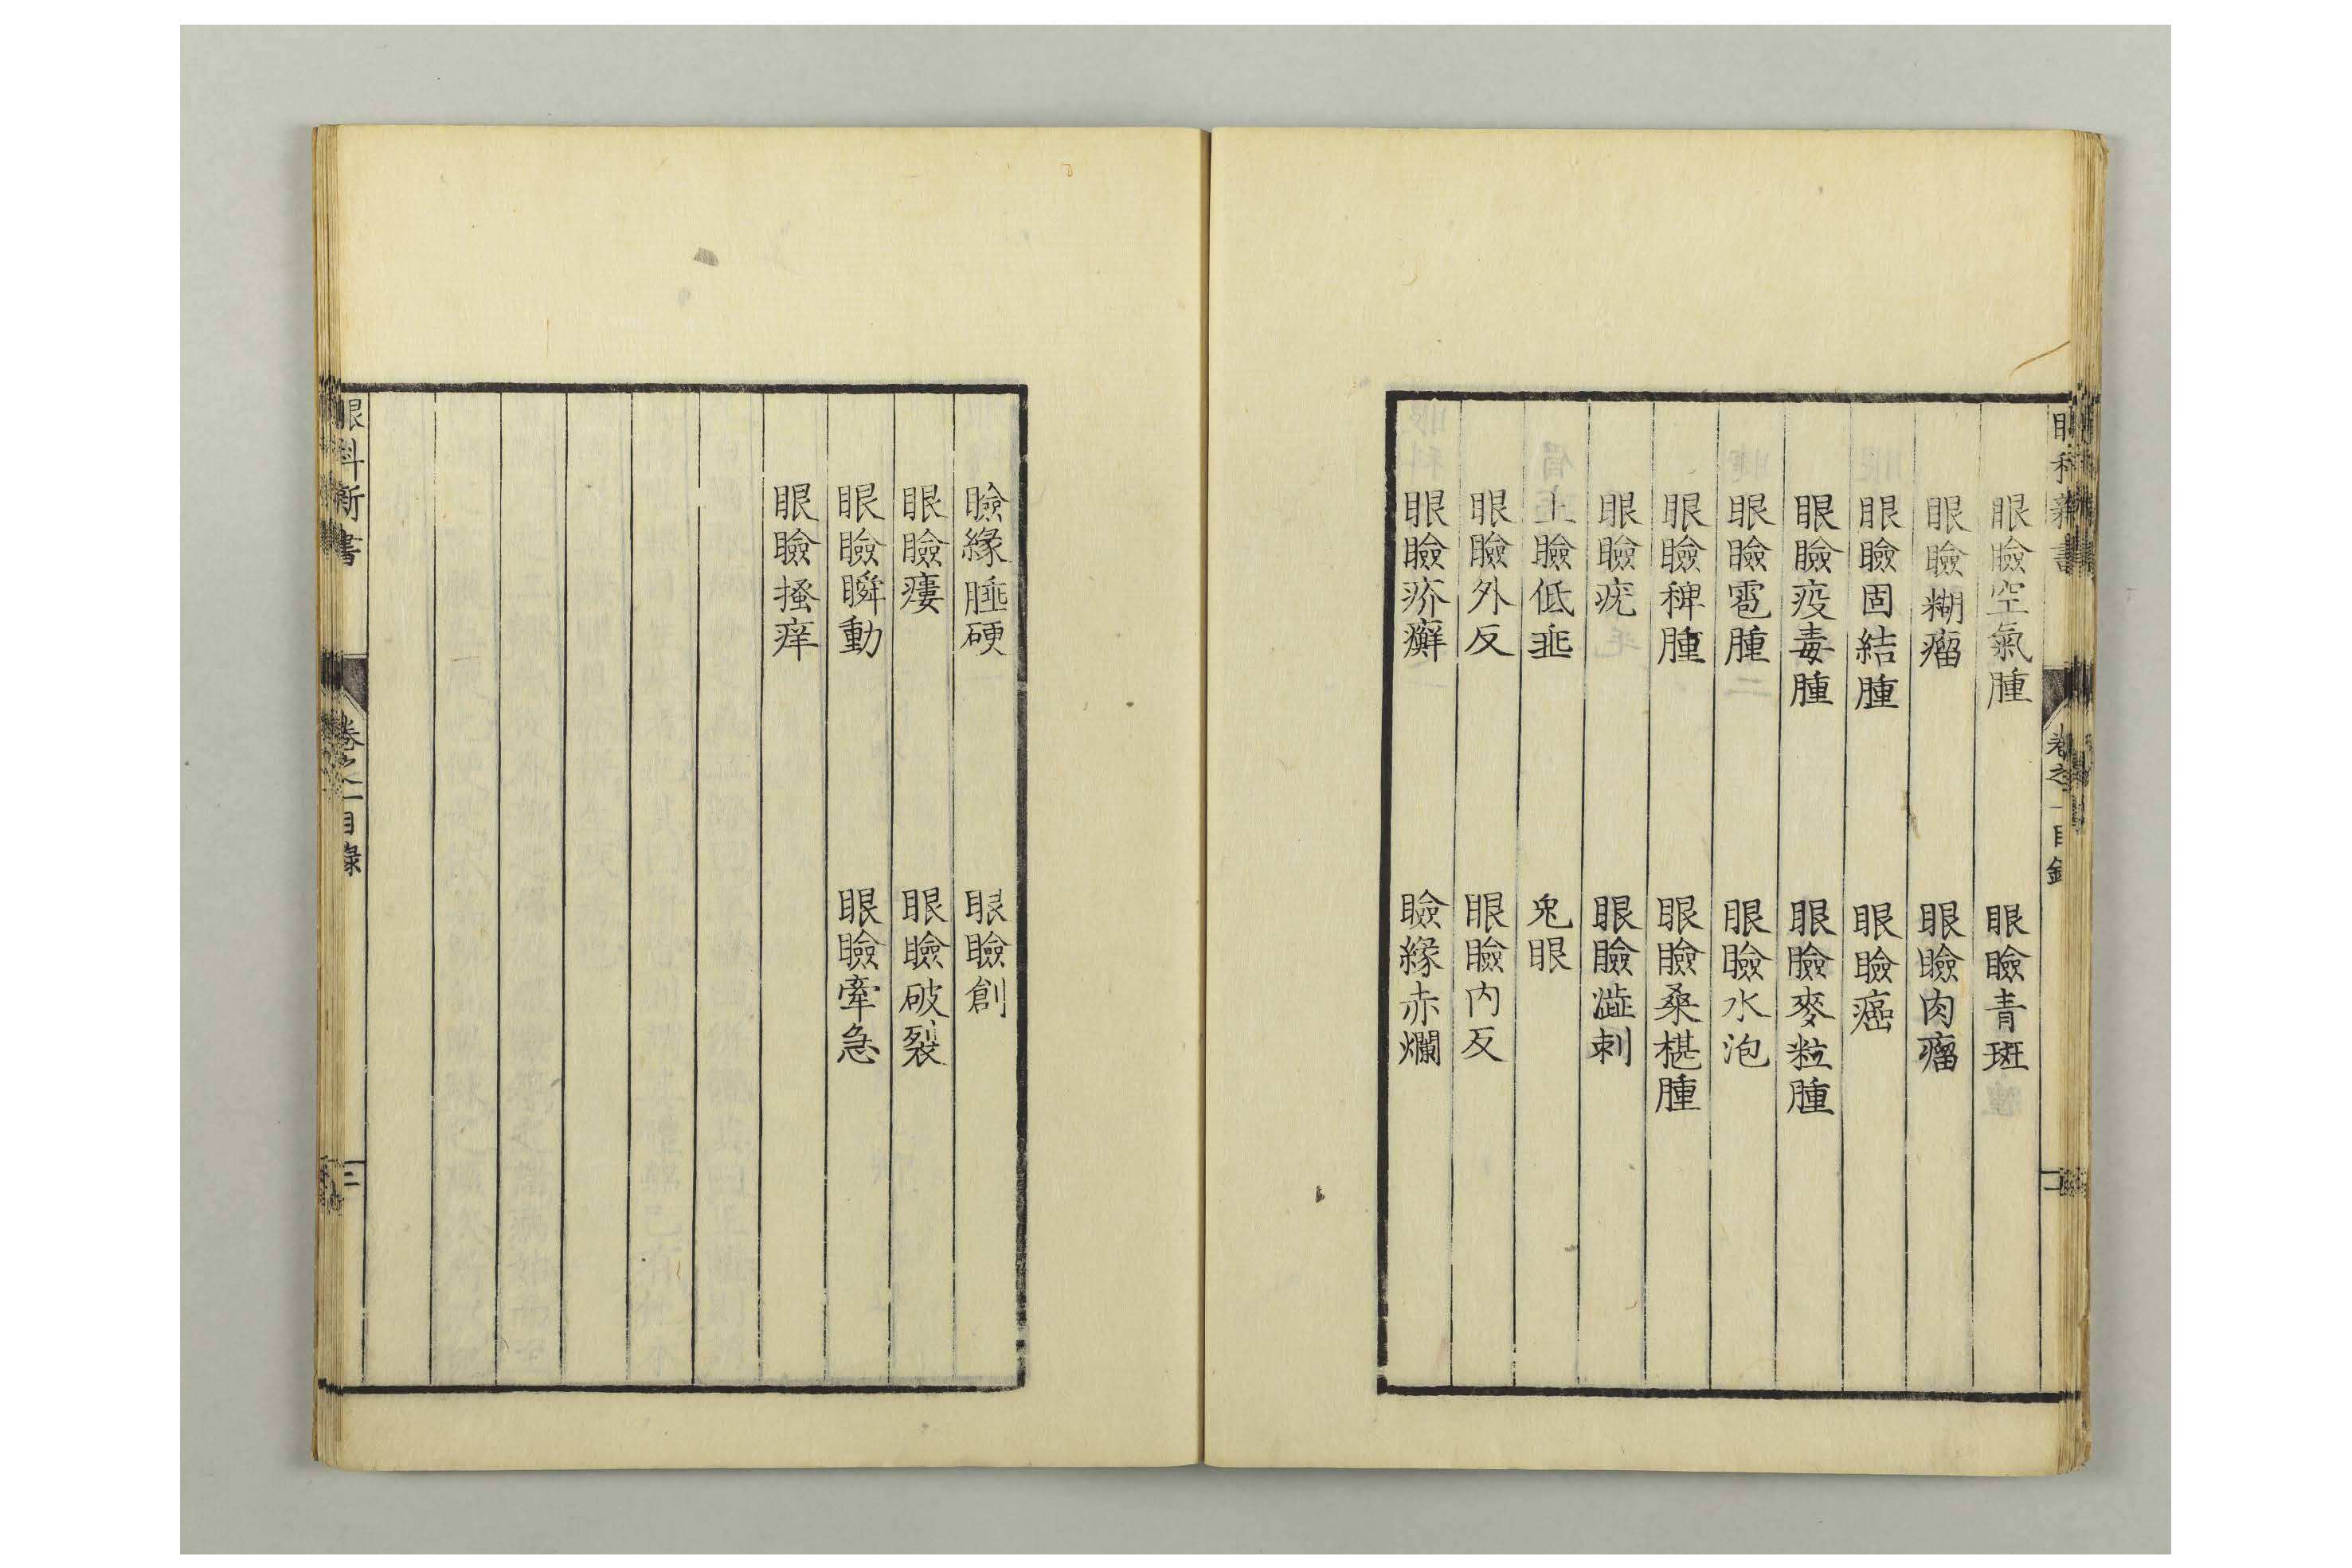 眼科新書 卷之一目錄 二
眼瞼空氣腫 眼瞼青斑
眼瞼糊瘤 眼瞼肉瘤
眼瞼固結腫 眼瞼癌
眼瞼疫毒腫 眼瞼麥粒腫
眼瞼雹腫 眼瞼水泡
眼瞼稗腫 眼瞼桑椹腫
眼瞼疣 眼瞼澁刺
上瞼低垂 兎眼
眼瞼外反 眼瞼内反
眼瞼疥癬 瞼緣赤爛
瞼緣腫硬 眼瞼創
眼瞼瘻 眼瞼破裂
眼瞼瞬動 眼瞼牽急
眼瞼搔痒
眼科新書 卷之一目錄 三